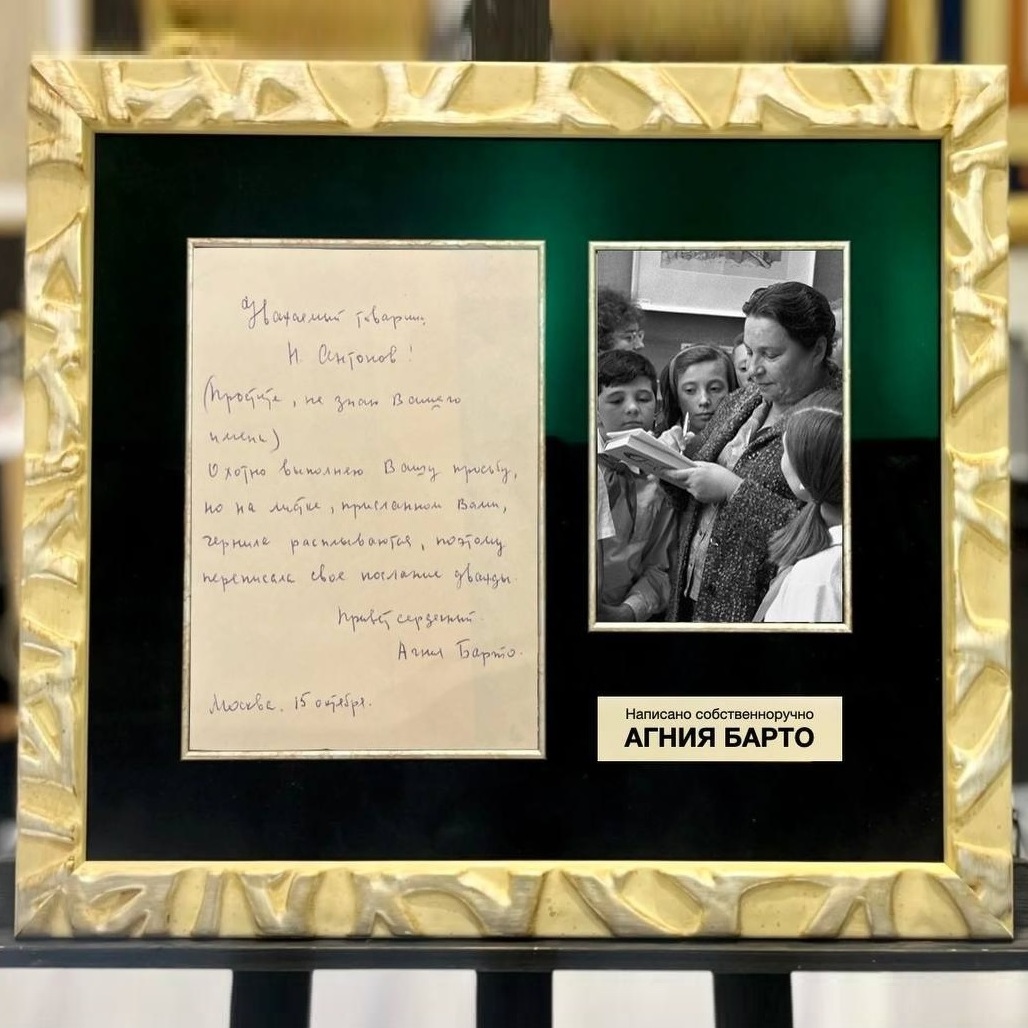 Уважаемый товарищ
И. Антонов!
(Простите, не знаю Вашего
имени)
Охотно выполняю Вашу просьбу,
но на листке, присланном Вами,
чернила расплываются, поэтому
переписала свое послание дважды.
Привет сердечный.
Агния Барто.
Москва. 15 октября.
Написано собственноручно
АГНИЯ БАРТО